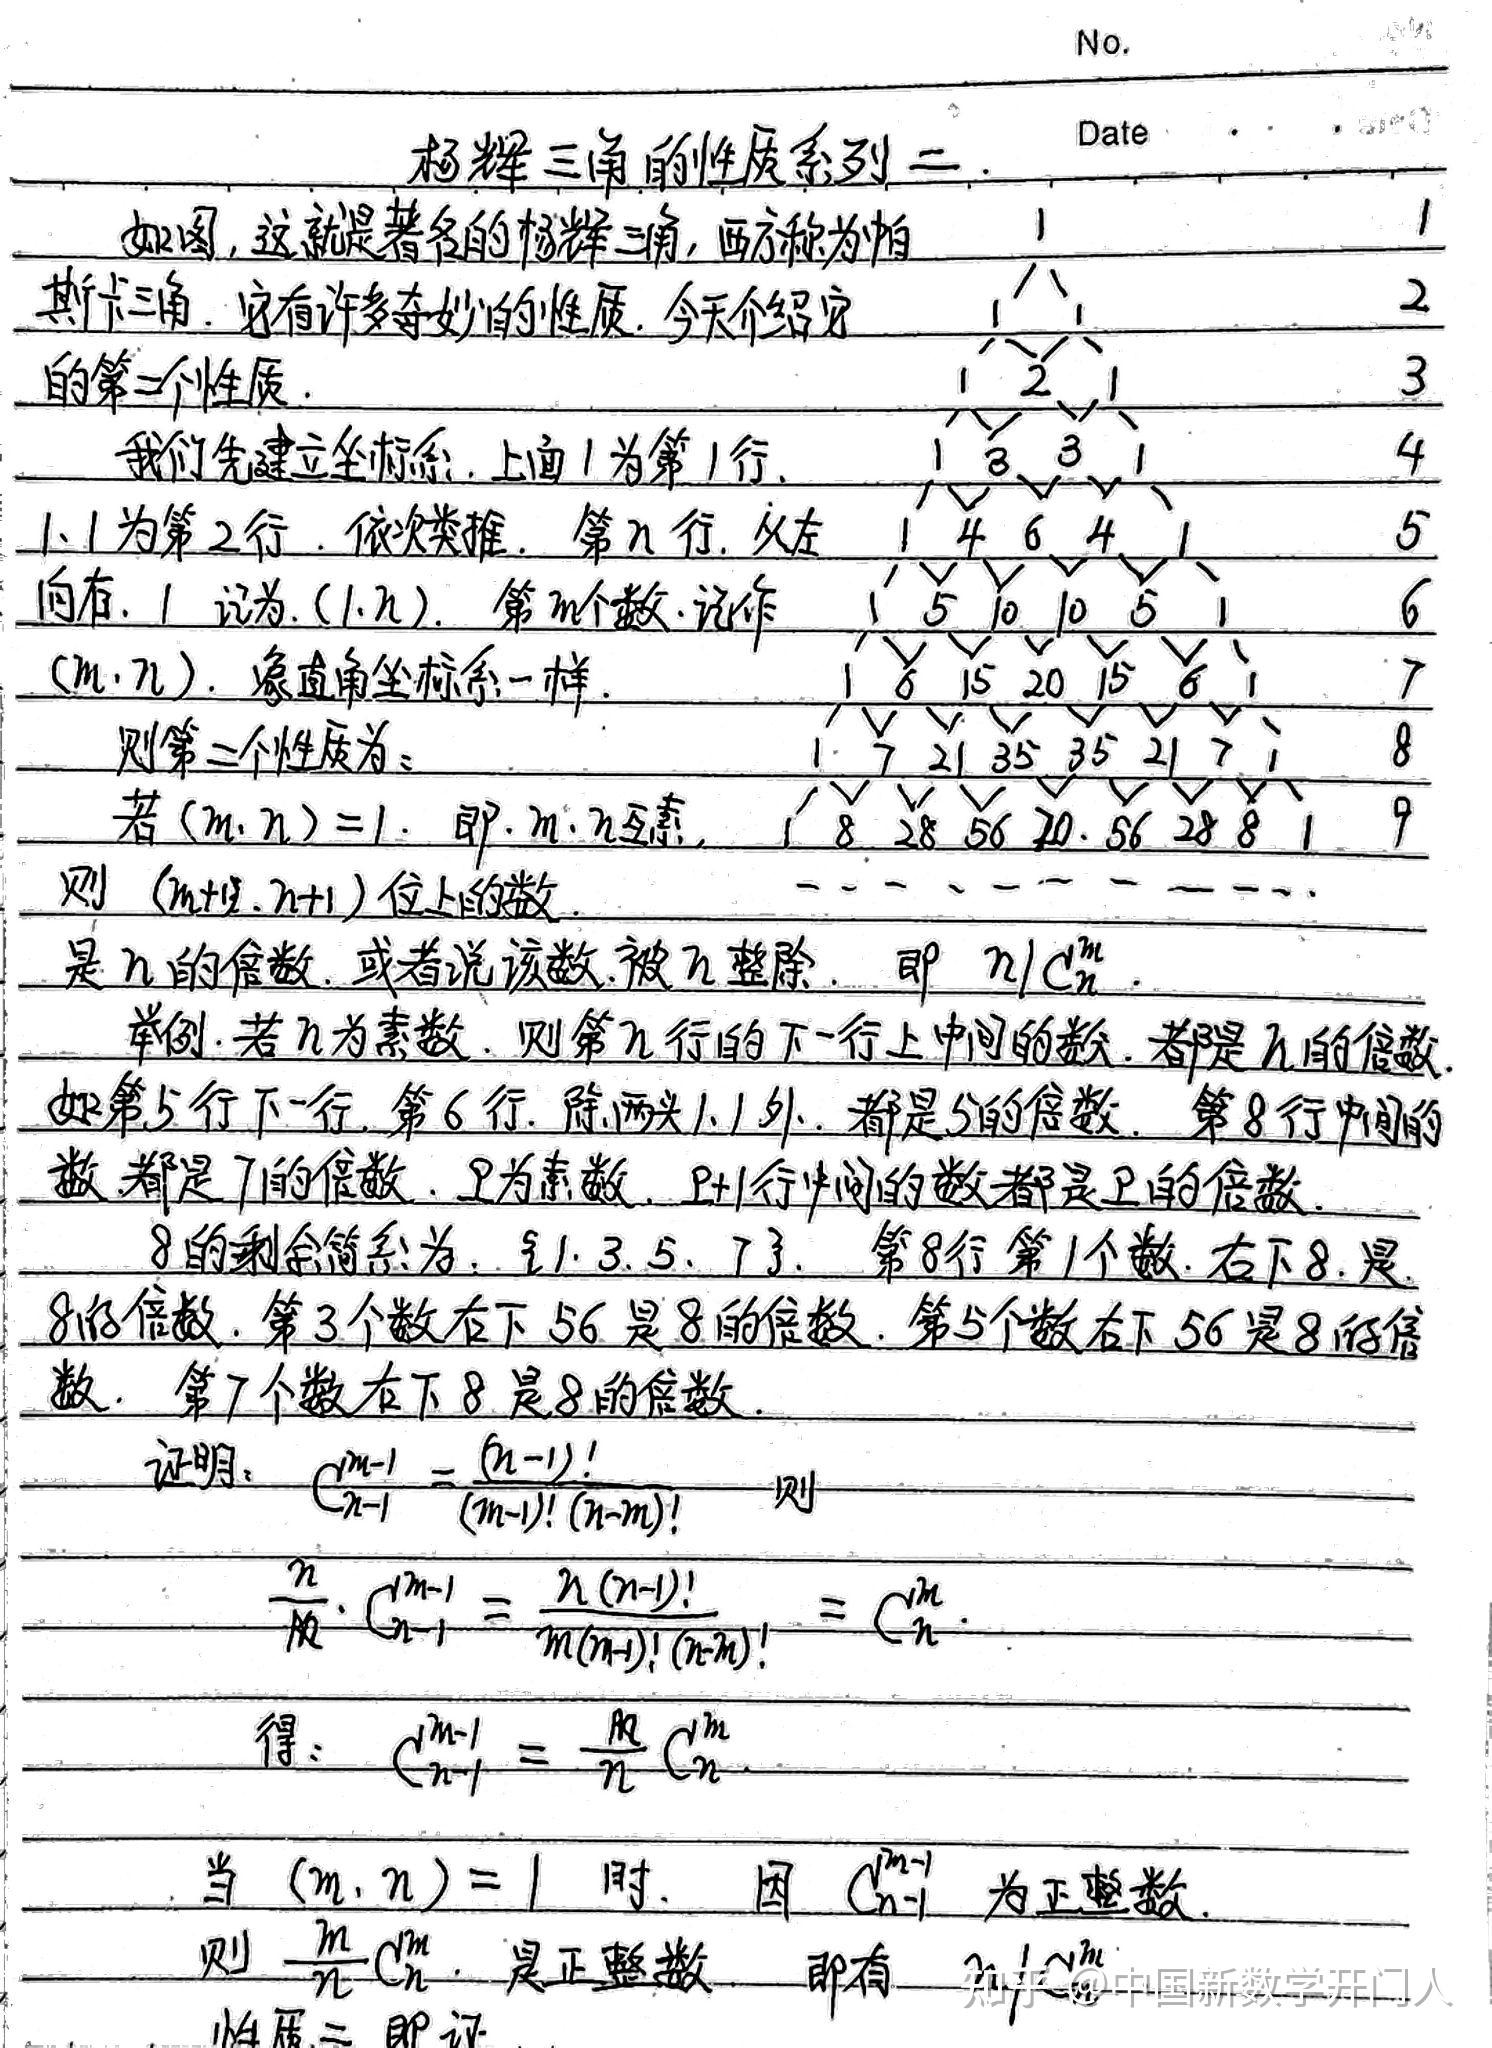 No.
Date
杨辉三角的性质系列二.
如图,这就是著名的杨辉三角,西方称为帕
斯卡三角.它有许多奇妙的性质.今天介绍它
的第二个性质.
我们先建立坐标系.上面1为第1行.
1、1为第2行.依次类推.第n行.从左
向右.1记为.(1.n).第m个数.记作
(m.n).像直角坐标系一样.
则第二个性质为:
若(m.n)=1.即.m.n互素.
则(m+1.n+1)位上的数.
1 1
1 1 2
1 2 1 3
1 3 3 1 4
1 4 6 4 1 5
1 5 10 10 5 1 6
1 6 15 20 15 6 1 7
1 7 21 35 35 21 7 1 8
1 8 28 56 70 56 28 8 1 9
是n的倍数.或者说该数.被n整除.即 n|C_n^m.
举例.若n为素数.则第n行的下一行上中间的数.都是n的倍数.
如第5行下一行.第6行.除两头1.1外.都是5的倍数.第8行中间的
数.都是7的倍数.P为素数.P+1行中间的数都是P的倍数.
8的剩余简系为:{1.3.5、7}.第8行第1个数.右下8.是
8的倍数.第3个数右下56是8的倍数.第5个数右下56是8的倍
数.第7个数右下8是8的倍数.
证明: C_{n-1}^{m-1} = (n-1)!/((m-1)!(n-m)!) 则
n/m · C_{n-1}^{m-1} = n(n-1)!/(m(m-1)!(n-m)!) = C_n^m.
得: C_{n-1}^{m-1} = m/n C_n^m.
当 (m.n)=1 时. 因 C_{n-1}^{m-1} 为正整数.
则 m/n C_n^m. 是正整数 即有 n|C_n^m
知乎 @中国新数学开门人
性质二即证